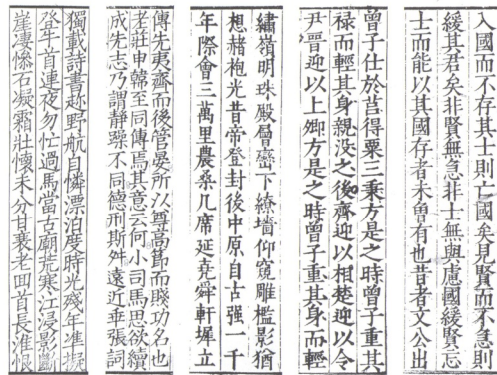 入國而不存其士則亡國矣見賢而不急則
緩其君矣非賢無急非士無與慮國緩賢忘
士而能以其國存者未曾有也昔者文公出
曾子仕於莒得粟三秉方是之時曾子重其
祿而輕其身親没之後齊迎以相楚迎以令
尹晉迎以上卿方是之時曾子重其身而輕
繡嶺明珠殿層巒下繚墻仰窺雕檻影猶
想赭袍光昔帝登封後中原自古强一千
年際會三萬里農桑几席延堯舜軒墀立
傳先夷齊而後管晏所以尊高節而賤功名也
老莊申韓至同傳焉其意云何小司馬思欲續
成先志乃謂靜躁不同德刑斯舛遠近乖張詞
獨載詩書趂野航自憐漂泊度時光殘年准擬
登牛首連夜勿忙過馬當古廟荒寒江浸影斷
崖凄慘石凝霜壯懷未分甘衰老回首長淮恨